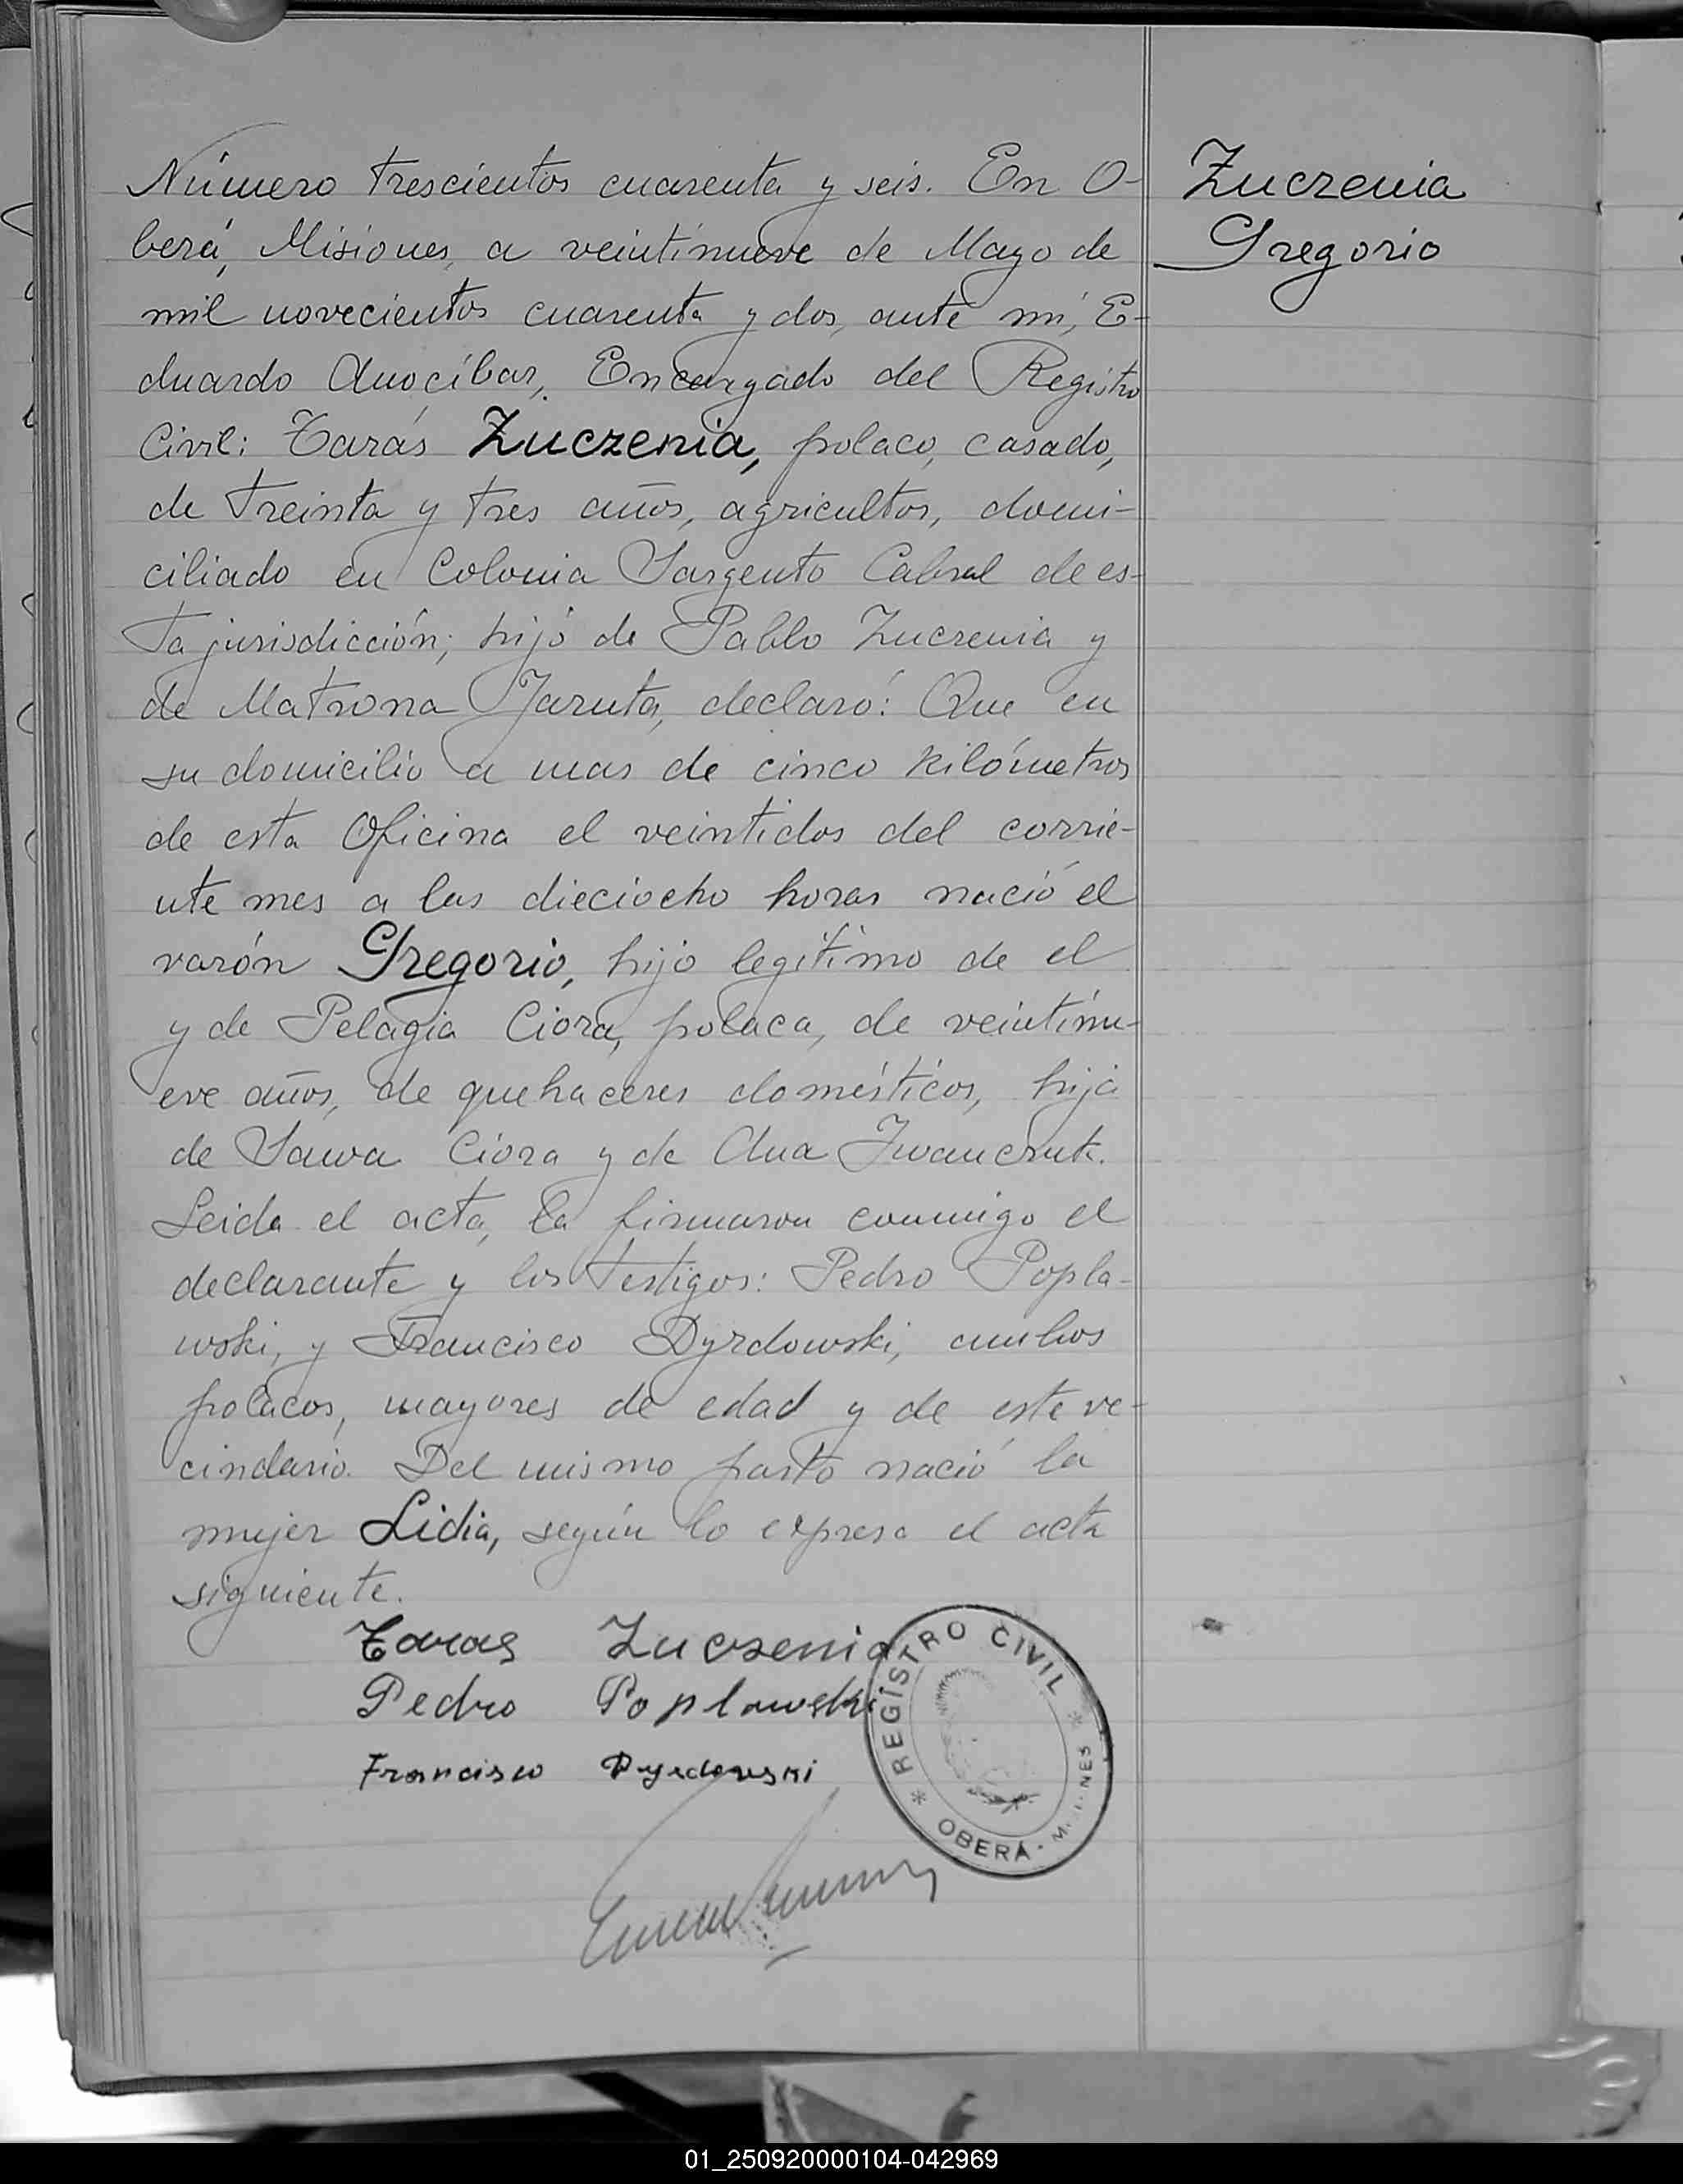 Número trescientos cuarenta y seis. En O-
berá, Misiones, a veintinueve de Mayo de
mil novecientos cuarenta y dos, ante mí, E-
duardo Anocíbar, Encargado del Registro
Civil: Tarás Zuczenia, polaco, casado,
de treinta y tres años, agricultor, domi-
ciliado en Colonia Sargento Cabral de es-
ta jurisdicción; hijo de Pablo Zuczenia y
de Matrona Jaruta, declaró: Que en
su domicilio a mas de cinco kilómetros
de esta Oficina el veintidos del corrie-
nte mes a las dieciocho horas nació el
varón Gregorio, hijo legítimo de el
y de Pelagia Ciora, polaca, de veintinu-
eve años, de quehaceres domésticos, hija
de Sawa Ciora y de Ana Iwanczuk.
Leida el acta, la firmaron conmigo el
declarante y los testigos: Pedro Popla-
wski, y Francisco Dyrdowski, ambos
polacos, mayores de edad y de este ve-
cindario. Del mismo parto nació la
mujer Lidia, según lo expresa el acta
siguiente.
Taras Zuczenia
Pedro Poplawski
Francisco Dyrdowski
Zuczenia
Gregorio
REGISTRO CIVIL
OBERÁ -
01_250920000104-042969